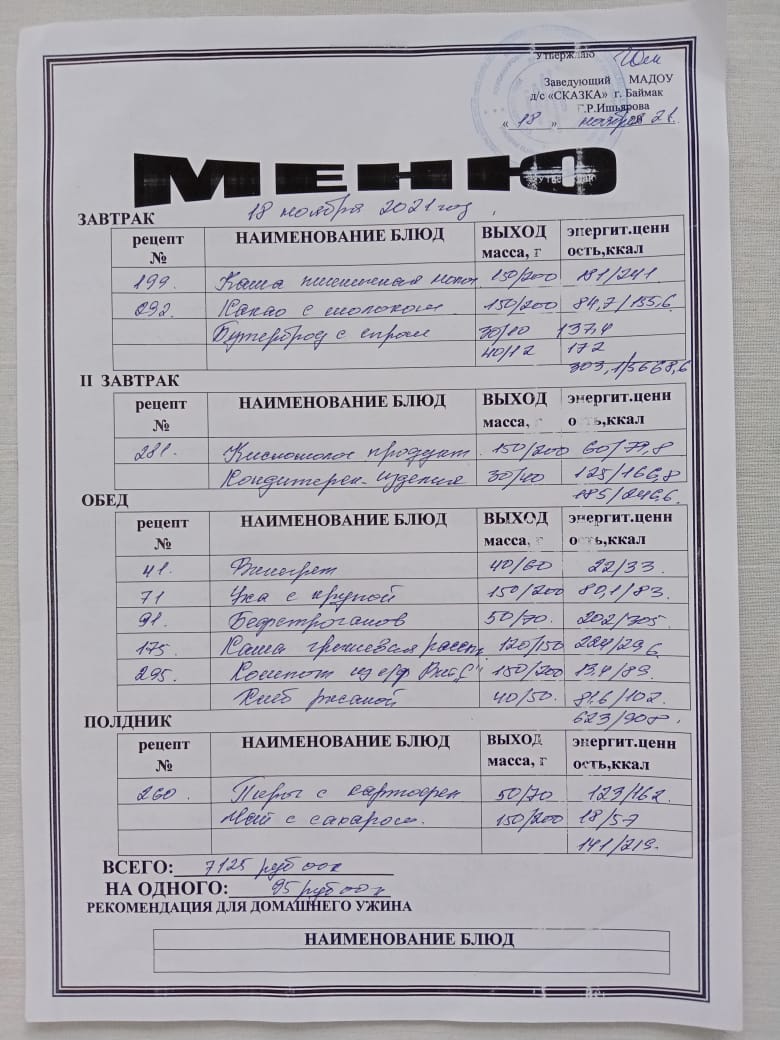 Утверждаю
Заведующий МАДОУ
д/с «СКАЗКА» г. Баймак
Г.Р.Ишьярова
« 18 » ноября 2021.
МЕНЮ
18 ноября 2021 год
ЗАВТРАК
рецепт № НАИМЕНОВАНИЕ БЛЮД ВЫХОД масса, г энергит.ценн ость,ккал
199. Каша пшеничная молоч. 150/200 181/241
292. Какао с молоком 150/200 84,7/155,6
Бутерброд с сыром 30/10 137,4
40/12 172
303,1/5668,6
II ЗАВТРАК
рецепт № НАИМЕНОВАНИЕ БЛЮД ВЫХОД масса, г энергит.ценн ость,ккал
281. Кисломолоч продукт 150/200 60/79,8
Кондитерск. изделия 30/40 125/166,8
185/246,6.
ОБЕД
рецепт № НАИМЕНОВАНИЕ БЛЮД ВЫХОД масса, г энергит.ценн ость,ккал
41. Винегрет 40/60 22/33.
71 Уха с крупой 150/200 80,1/83.
91. Бефстроганов 50/70. 202/305
175. Каша гречневая рассып 120/150 224/296
295. Компот из с/ф Вит.С" 150/200 13,4/89.
Хлеб ржаной 40/50. 81.6/102.
623/908.
ПОЛДНИК
рецепт № НАИМЕНОВАНИЕ БЛЮД ВЫХОД масса, г энергит.ценн ость,ккал
260. Пирог с картофел 50/70 123/162.
Чай с сахаром. 150/200 18/57
141/219.
ВСЕГО: 7125 руб 00к
НА ОДНОГО: 95 руб 00 к
РЕКОМЕНДАЦИЯ ДЛЯ ДОМАШНЕГО УЖИНА
НАИМЕНОВАНИЕ БЛЮД